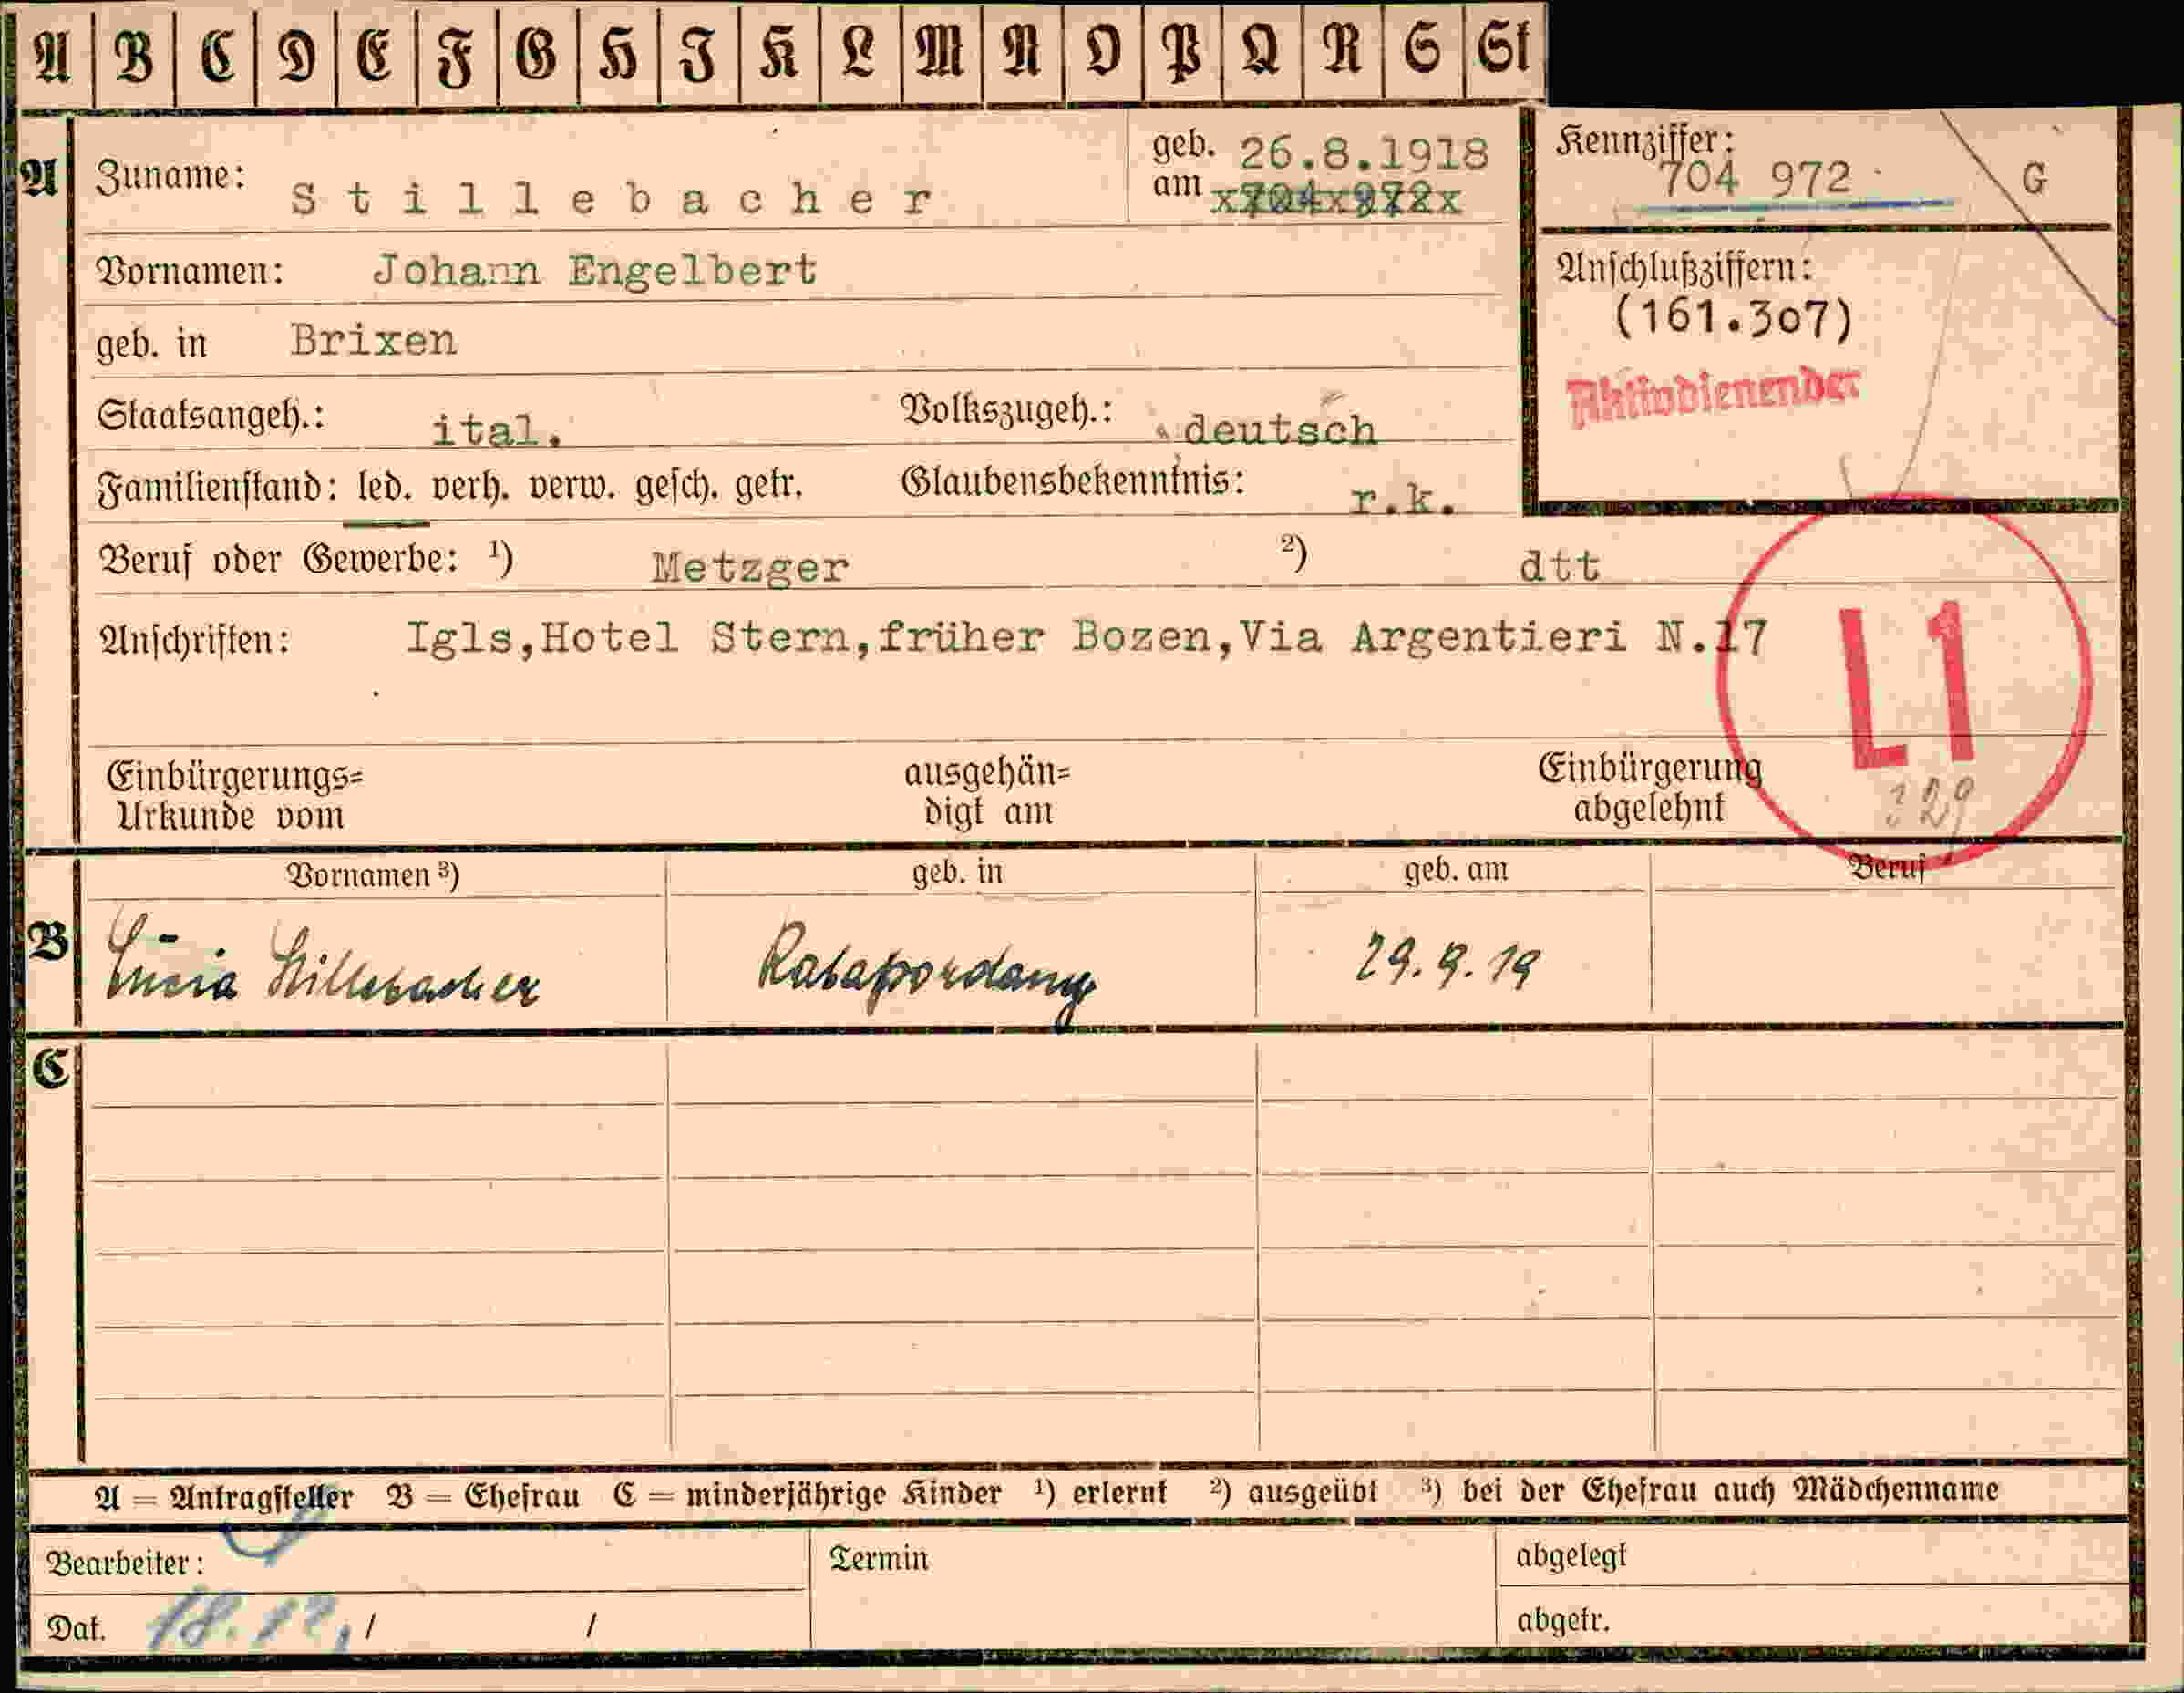 A B C D E F G H I K L M N O P Q R S St
A Zuname: Stillebacher geb. am 26.8.1918 x704x972x
Kennziffer: 704 972 G
Vornamen: Johann Engelbert
Anschlußziffern: (161.307)
geb. in Brixen
Aktivdienender
Staatsangeh.: ital. Volkszugeh.: deutsch
Familienstand: led. verh. verw. gesch. getr. Glaubensbekenntnis: r.k.
Beruf oder Gewerbe: ¹) Metzger ²) dtt
Anschriften: Igls,Hotel Stern,früher Bozen,Via Argentieri N.17
L1
Einbürgerungs= ausgehän= Einbürgerung
Urkunde vom digt am abgelehnt 329
Vornamen ³) geb. in geb. am Beruf
B Lucia Stillebacher 29.9.19
C
A = Antragsteller B = Ehefrau C = minderjährige Kinder ¹) erlernt ²) ausgeübt ³) bei der Ehefrau auch Mädchenname
Bearbeiter: Termin abgelegt
Dat. 18.12. / / abgetr.